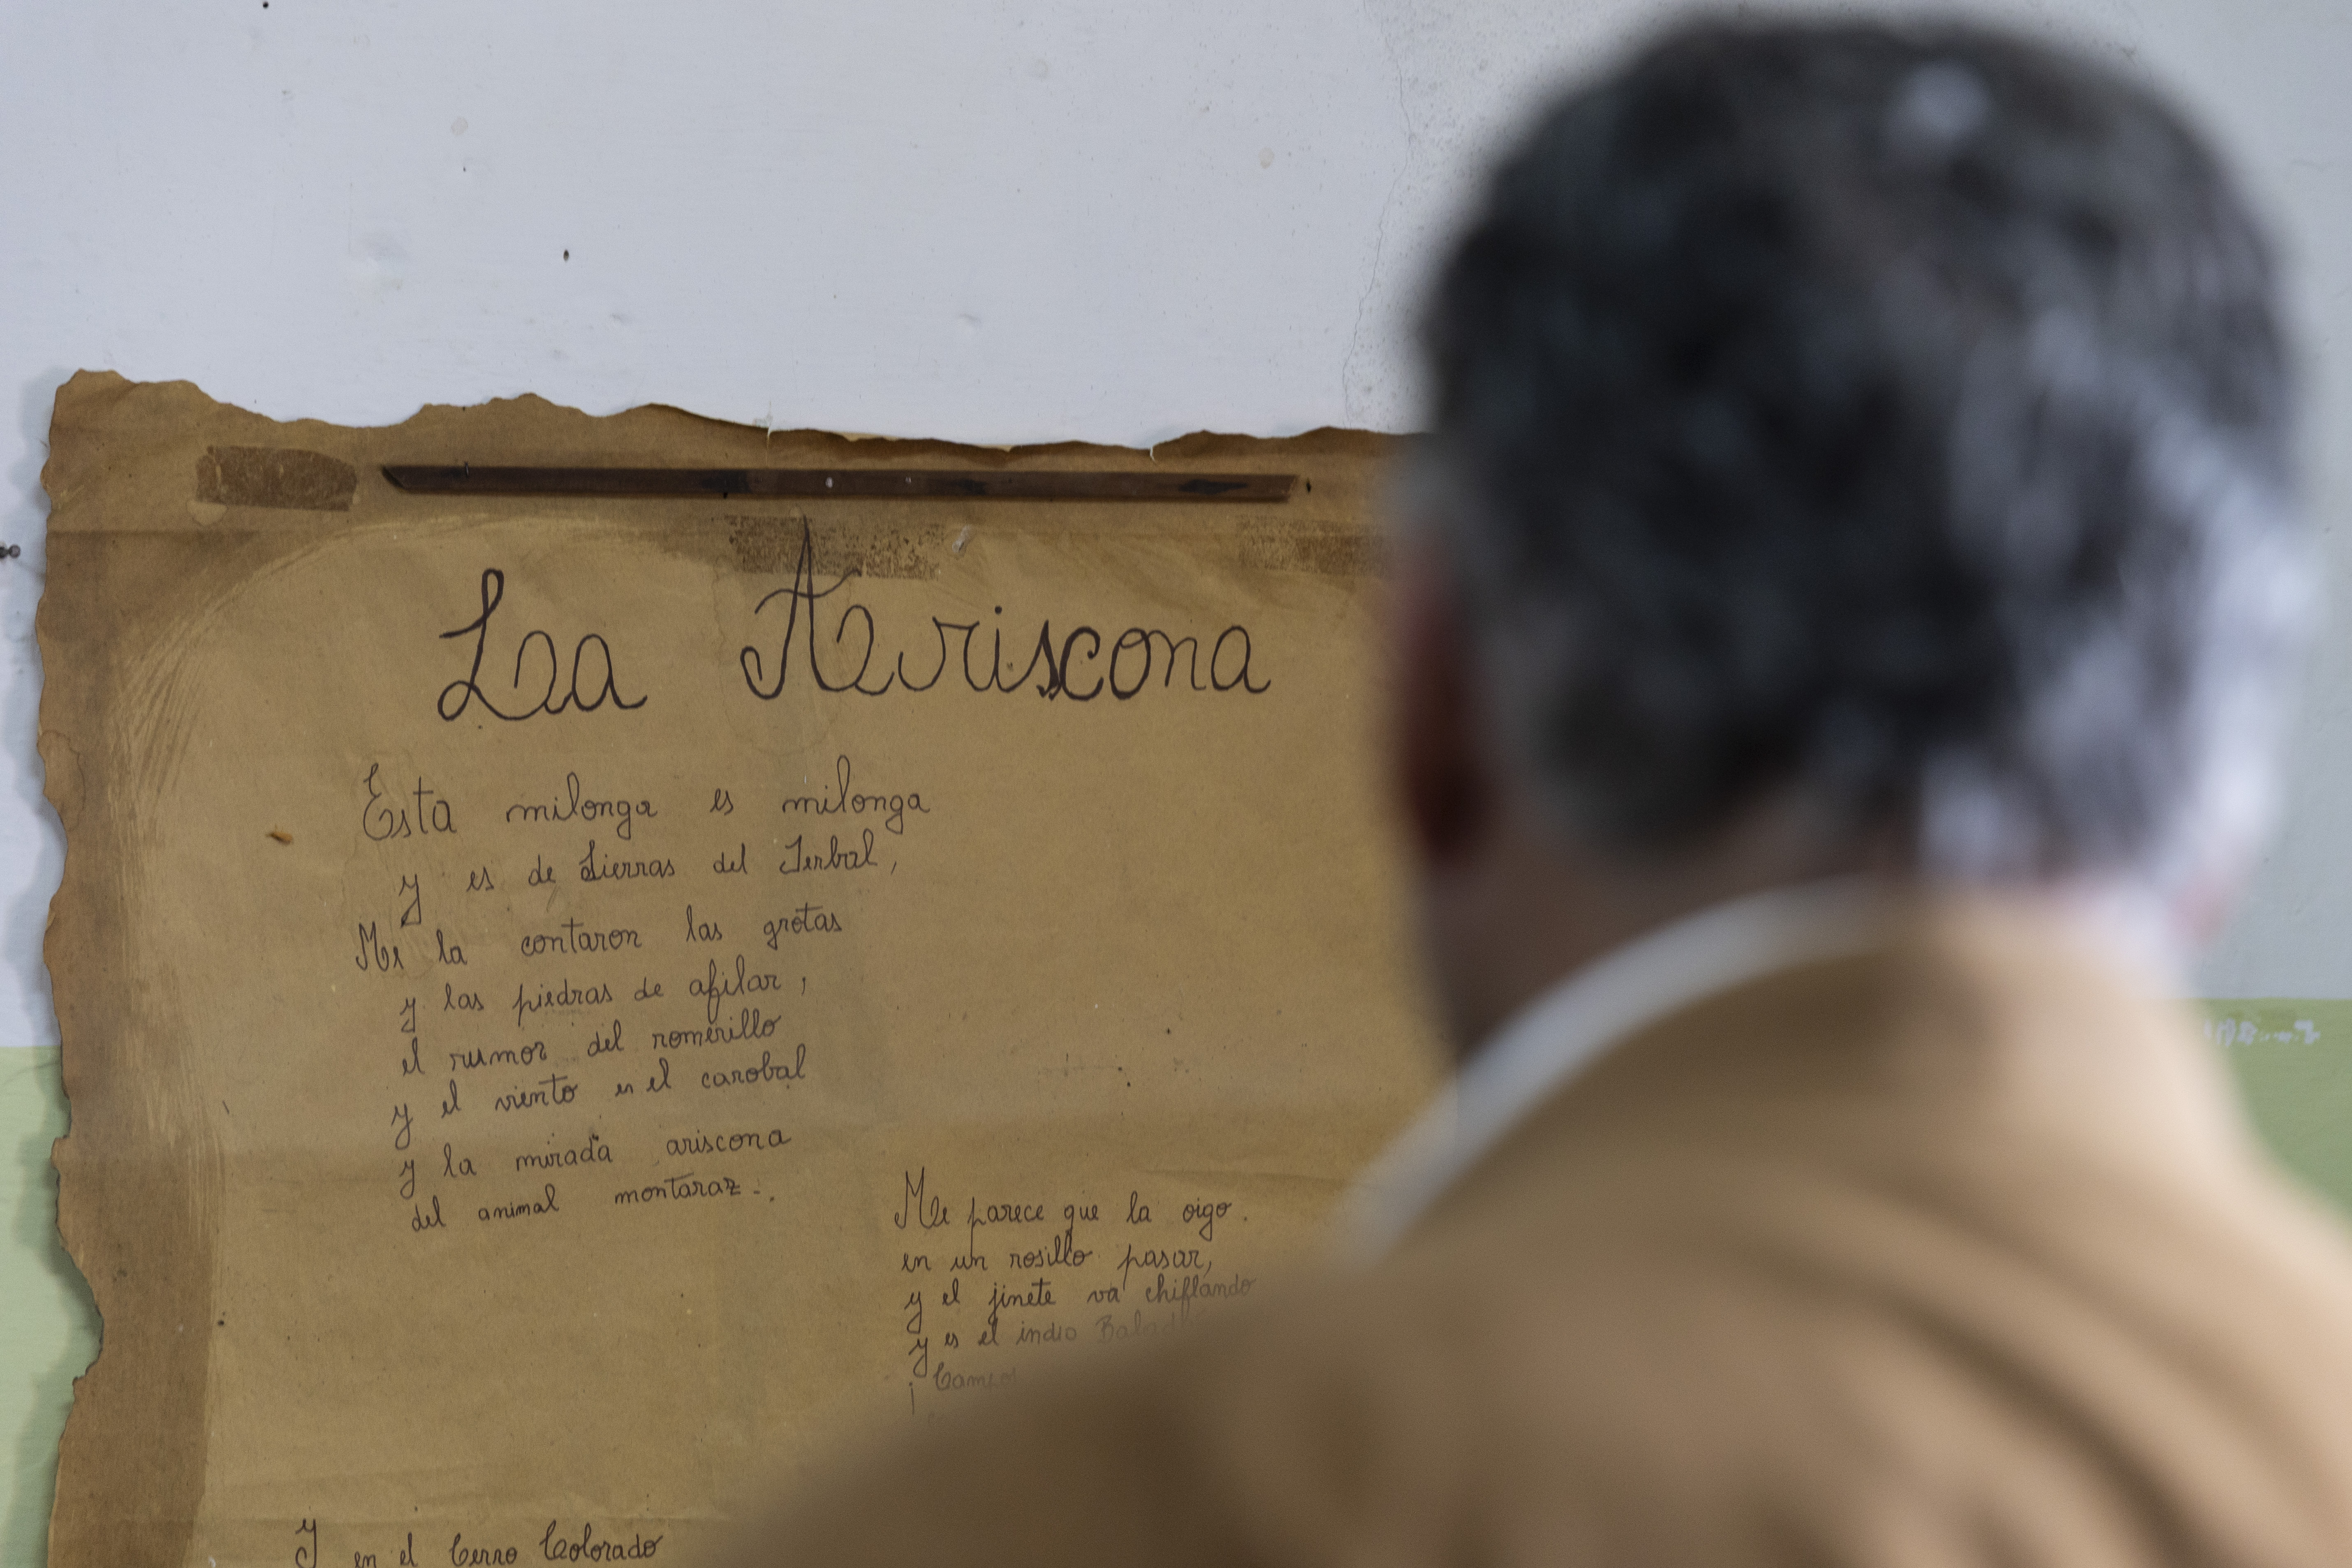 La Ariscona
Esta milonga es milonga
y es de Sierras del Yerbal,
Me la contaron las grotas
y las piedras de afilar,
el rumor del romerillo
y el viento en el carobal
y la mirada ariscona
del animal montaraz..
Me parece que la oigo.
en un rosillo pasar,
y el jinete va chiflando
y es el indio
Y en el Cerro Colorado